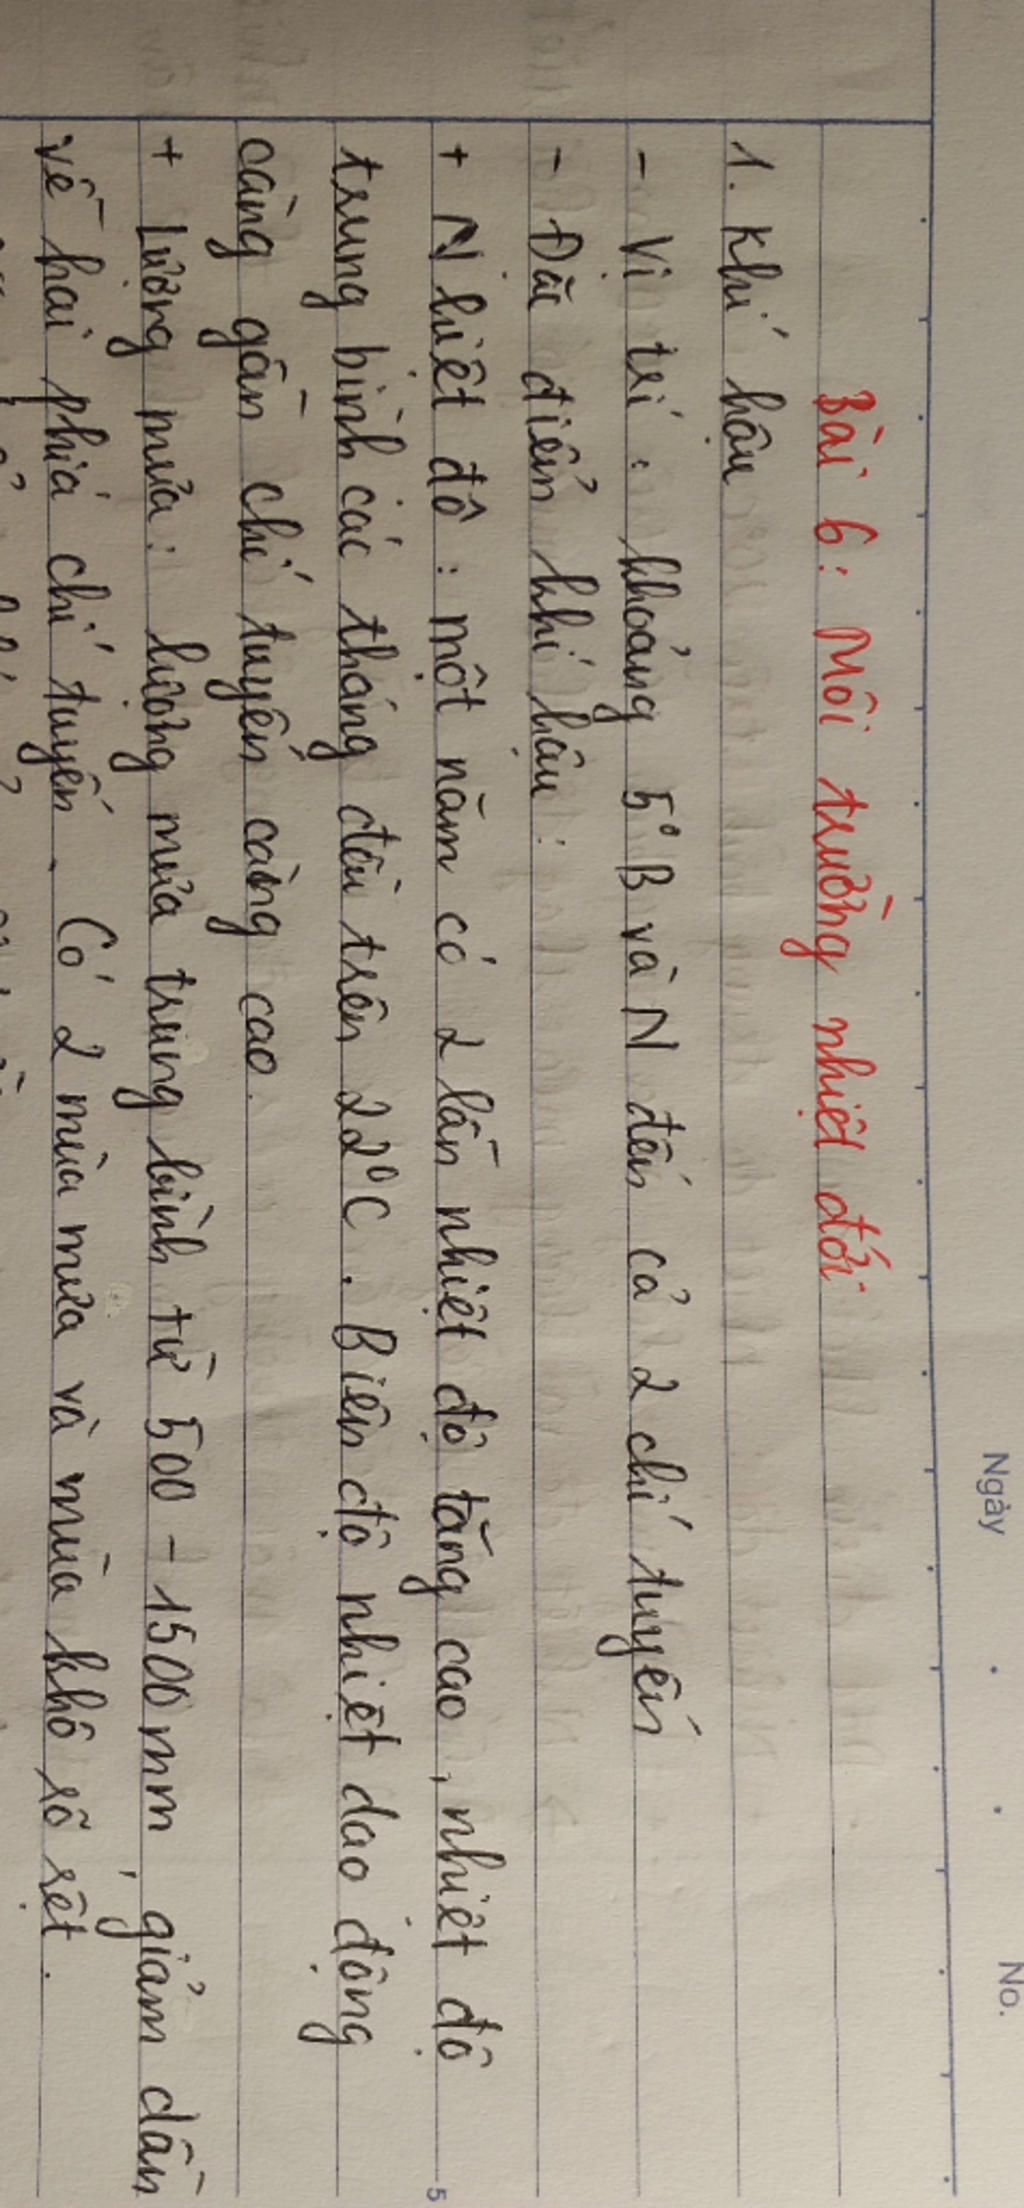 Ngày
No.
Bài 6: Môi trường nhiệt đới
1. Khí hậu
- Vị trí: khoảng 5° B và N đến cả 2 chí tuyến
- Đặc điểm khí hậu:
+ Nhiệt độ: một năm có 2 lần nhiệt độ tăng cao, nhiệt độ
trung bình các tháng đều trên 22°C. Biên độ nhiệt dao động
càng gần chí tuyến càng cao.
+ Lượng mưa: lượng mưa trung bình từ 500 - 1500mm, giảm dần
về hai phía chí tuyến. Có 2 mùa mưa và mùa khô rõ rệt.
5